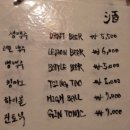 酒
생맥주 DRAFT BEER ₩ 5,000
레몬맥주 LEMON BEER ₩ 6,000
병맥주 BOTTLE BEER ₩ 5,000
칭따오 TSING TAO ₩
하이볼 HIGH BALL ₩
진토닉 GIN TONIC ₩